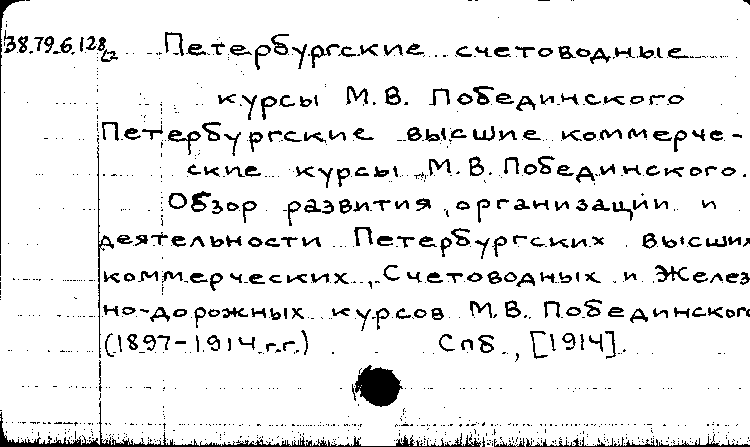 38.79.6.128 Петербургские счетоводные
курсы М.В. Побединского
Петербургские высшие коммерче-
ские курсы М.В. Побединского.
Обзор развития, организации и
деятельности Петербургских высших
коммерческих, Счетоводных и Желез
но-дорожных курсов М.В. Побединского
(1897-1914 г.г.) Спб., [1914].